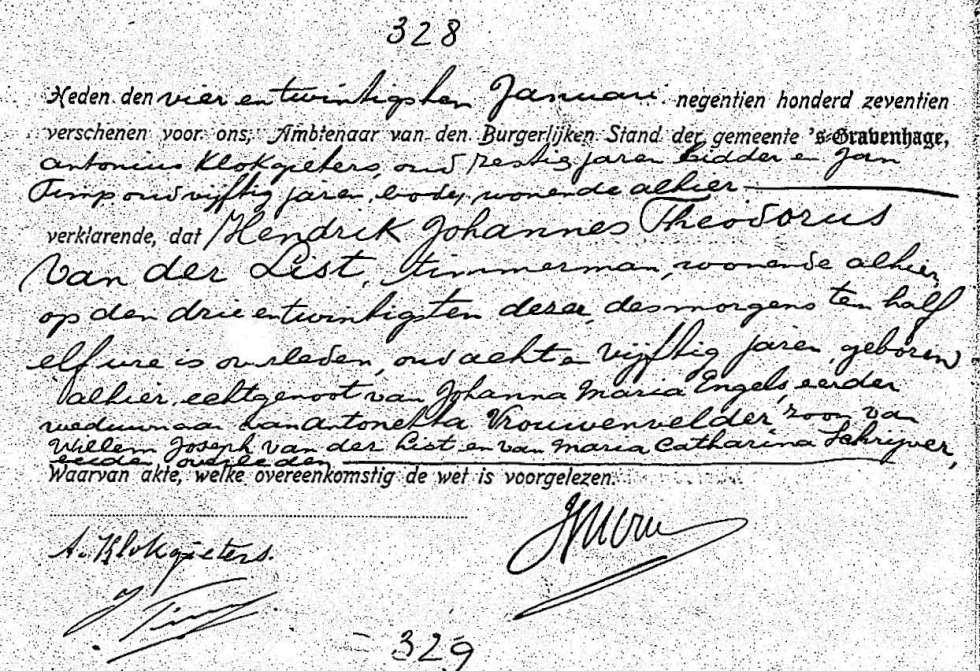 328
Heden den vier en twintigsten Januari negentien honderd zeventien
verschenen voor ons, Ambtenaar van den Burgerlijken Stand der gemeente 's-Gravenhage,
Antonius Klokgieters, oud zestig jaren bidder en Jan
Timp oud vijftig jaren, bode, wonende alhier
verklarende, dat Hendrik Johannes Theodorus
van der List, timmerman, wonende alhier,
op den drie en twintigsten dezer, desmorgens ten half
elf ure is overleden, oud acht en vijftig jaren, geboren
alhier, echtgenoot van Johanna Maria Engels, eerder
weduwnaar van Antonetta Vrouwenvelder, zoon van
Willem Joseph van der List, en van Maria Catharina Schrijver,
beiden overleden
Waarvan akte, welke overeenkomstig de wet is voorgelezen.
A. Klokgieters.
329